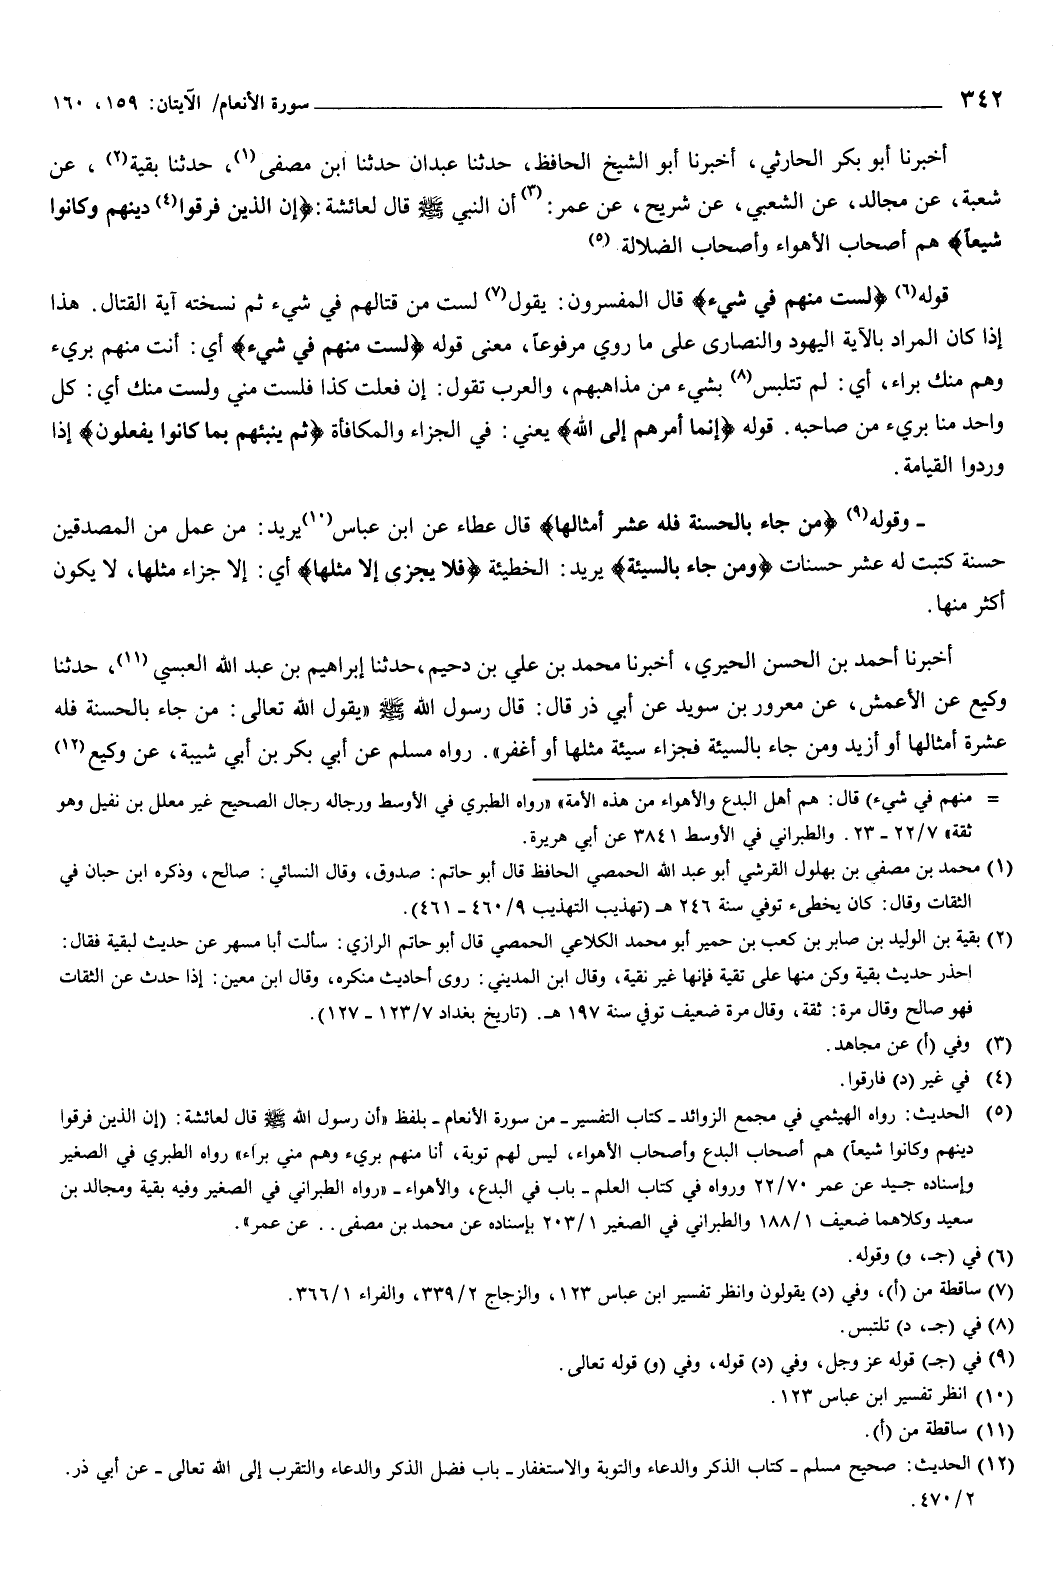 ٣٤٢ ــــــــــ سورة الأنعام/ الآيتان: ١٥٩، ١٦٠
أخبرنا أبو بكر الحارثي، أخبرنا أبو الشيخ الحافظ، حدثنا عبدان حدثنا ابن مصفى(١)، حدثنا بقية(٢)، عن
شعبة، عن مجالد، عن الشعبي، عن شريح، عن عمر:(٣) أن النبي ﷺ قال لعائشة: ﴿إن الذين فرقوا(٤) دينهم وكانوا
شيعاً﴾ هم أصحاب الأهواء وأصحاب الضلالة (٥)
قوله(٦) ﴿لست منهم في شيء﴾ قال المفسرون: يقول(٧) لست من قتالهم في شيء ثم نسخته آية القتال. هذا
إذا كان المراد بالآية اليهود والنصارى على ما روي مرفوعاً، معنى قوله ﴿لست منهم في شيء﴾ أي: أنت منهم بريء
وهم منك براء، أي: لم تتلبس(٨) بشيء من مذاهبهم، والعرب تقول: إن فعلت كذا فلست مني ولست منك أي: كل
واحد منا بريء من صاحبه. قوله ﴿إنما أمرهم إلى الله﴾ يعني: في الجزاء والمكافأة ﴿ثم ينبئهم بما كانوا يفعلون﴾ إذا
وردوا القيامة.
ـ وقوله(٩) ﴿من جاء بالحسنة فله عشر أمثالها﴾ قال عطاء عن ابن عباس(١٠) يريد: من عمل من المصدقين
حسنة كتبت له عشر حسنات ﴿ومن جاء بالسيئة﴾ يريد: الخطيئة ﴿فلا يجزى إلا مثلها﴾ أي: إلا جزاء مثلها، لا يكون
أكثر منها.
أخبرنا أحمد بن الحسن الحيري، أخبرنا محمد بن علي بن دحيم، حدثنا إبراهيم بن عبد الله العبسي(١١)، حدثنا
وكيع عن الأعمش، عن معرور بن سويد عن أبي ذر قال: قال رسول الله ﷺ «يقول الله تعالى: من جاء بالحسنة فله
عشرة أمثالها أو أزيد ومن جاء بالسيئة فجزاء سيئة مثلها أو أغفر». رواه مسلم عن أبي بكر بن أبي شيبة، عن وكيع(١٢)
= منهم في شيء) قال: هم أهل البدع والأهواء من هذه الأمة» «رواه الطبري في الأوسط ورجاله رجال الصحيح غير معلل بن نفيل وهو
ثقة» ٢٢/٧ ـ ٢٣. والطبراني في الأوسط ٣٨٤١ عن أبي هريرة.
(١) محمد بن مصفى بن بهلول القرشي أبو عبد الله الحمصي الحافظ قال أبو حاتم: صدوق، وقال النسائي: صالح، وذكره ابن حبان في
الثقات وقال: كان يخطىء توفي سنة ٢٤٦ هـ (تهذيب التهذيب ٤٦٠/٩ ـ ٤٦١).
(٢) بقية بن الوليد بن صابر بن كعب بن حمير أبو محمد الكلاعي الحمصي قال أبو حاتم الرازي: سألت أبا مسهر عن حديث لبقية فقال:
احذر حديث بقية وكن منها على تقية فإنها غير نقية، وقال ابن المديني: روى أحاديث منكره، وقال ابن معين: إذا حدث عن الثقات
فهو صالح وقال مرة: ثقة، وقال مرة ضعيف توفي سنة ١٩٧ هـ. (تاريخ بغداد ١٢٣/٧ ـ ١٢٧).
(٣) وفي (أ) عن مجاهد.
(٤) في غير (د) فارقوا.
(٥) الحديث: رواه الهيثمي في مجمع الزوائد ـ كتاب التفسير ـ من سورة الأنعام ـ بلفظ «أن رسول الله ﷺ قال لعائشة: (إن الذين فرقوا
دينهم وكانوا شيعاً) هم أصحاب البدع وأصحاب الأهواء، ليس لهم توبة، أنا منهم بريء وهم مني براء» رواه الطبري في الصغير
وإسناده جيد عن عمر ٢٢/٧٠ ورواه في كتاب العلم ـ باب في البدع، والأهواء ـ «رواه الطبراني في الصغير وفيه بقية ومجالد بن
سعيد وكلاهما ضعيف ١٨٨/١ والطبراني في الصغير ٢٠٣/١ بإسناده عن محمد بن مصفى.. عن عمر».
(٦) في (جـ، و) وقوله.
(٧) ساقطة من (أ)، وفي (د) يقولون وانظر تفسير ابن عباس ١٢٣، والزجاج ٣٣٩/٢، والفراء ٣٦٦/١.
(٨) في (جـ، د) تلتبس.
(٩) في (جـ) قوله عز وجل، وفي (د) قوله، وفي (و) قوله تعالى.
(١٠) انظر تفسير ابن عباس ١٢٣.
(١١) ساقطة من (أ).
(١٢) الحديث: صحيح مسلم ـ كتاب الذكر والدعاء والتوبة والاستغفار ـ باب فضل الذكر والدعاء والتقرب إلى الله تعالى ـ عن أبي ذر.
٤٧٠/٢.